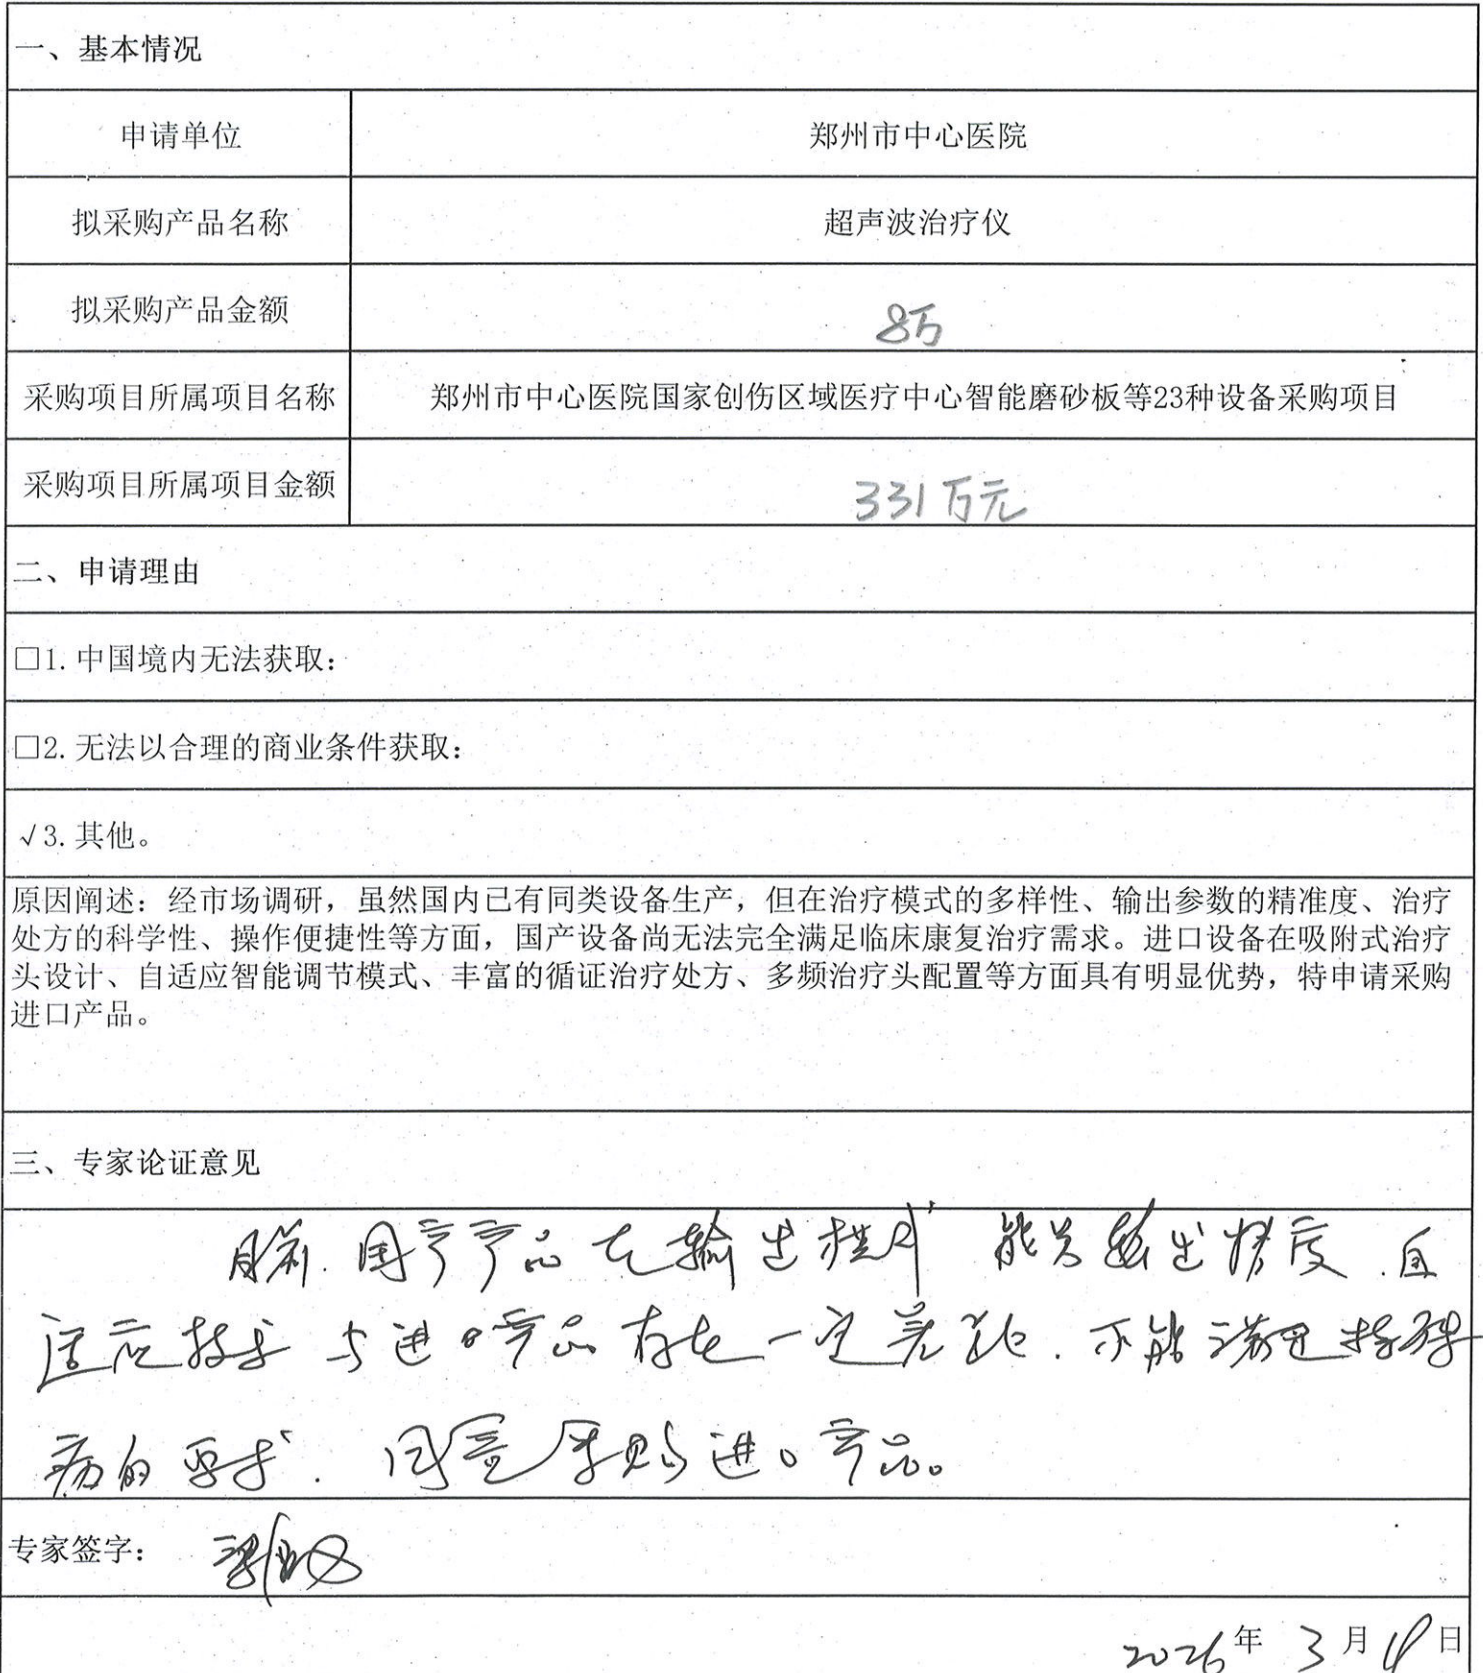 一、基本情况
申请单位 郑州市中心医院
拟采购产品名称 超声波治疗仪
拟采购产品金额 8万
采购项目所属项目名称 郑州市中心医院国家创伤区域医疗中心智能磨砂板等23种设备采购项目
采购项目所属项目金额 331万元
二、申请理由
□1.中国境内无法获取：
□2.无法以合理的商业条件获取：
√3.其他。
原因阐述：经市场调研，虽然国内已有同类设备生产，但在治疗模式的多样性、输出参数的精准度、治疗
处方的科学性、操作便捷性等方面，国产设备尚无法完全满足临床康复治疗需求。进口设备在吸附式治疗
头设计、自适应智能调节模式、丰富的循证治疗处方、多频治疗头配置等方面具有明显优势，特申请采购
进口产品。
三、专家论证意见
目前.国产产品在输出模式 能量输出精度.自
适应技术与进口产品存在一定差距.不能满足特殊
病的要求.同意采购进口产品。
专家签字：
2026年3月4日